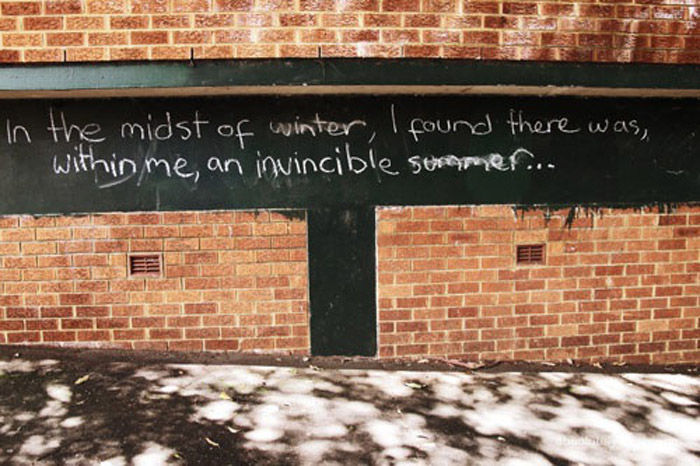 In the midst of winter, I found there was,
within me, an invincible summer...